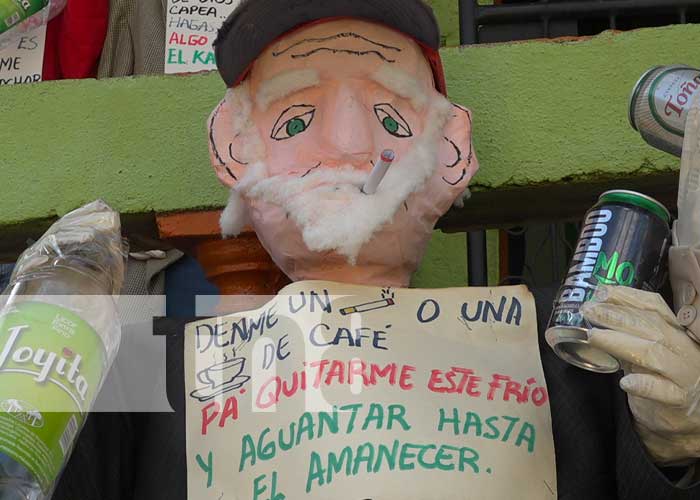 CAPEA.
HAGAS
ES
ALGO
ME
EL KA
CHOR
Toña
BAMBOO
Licor
Joyita
DENME UN O UNA
DE CAFÉ
PA' QUITARME ESTE FRÍO
Y AGUANTAR HASTA
EL AMANECER.